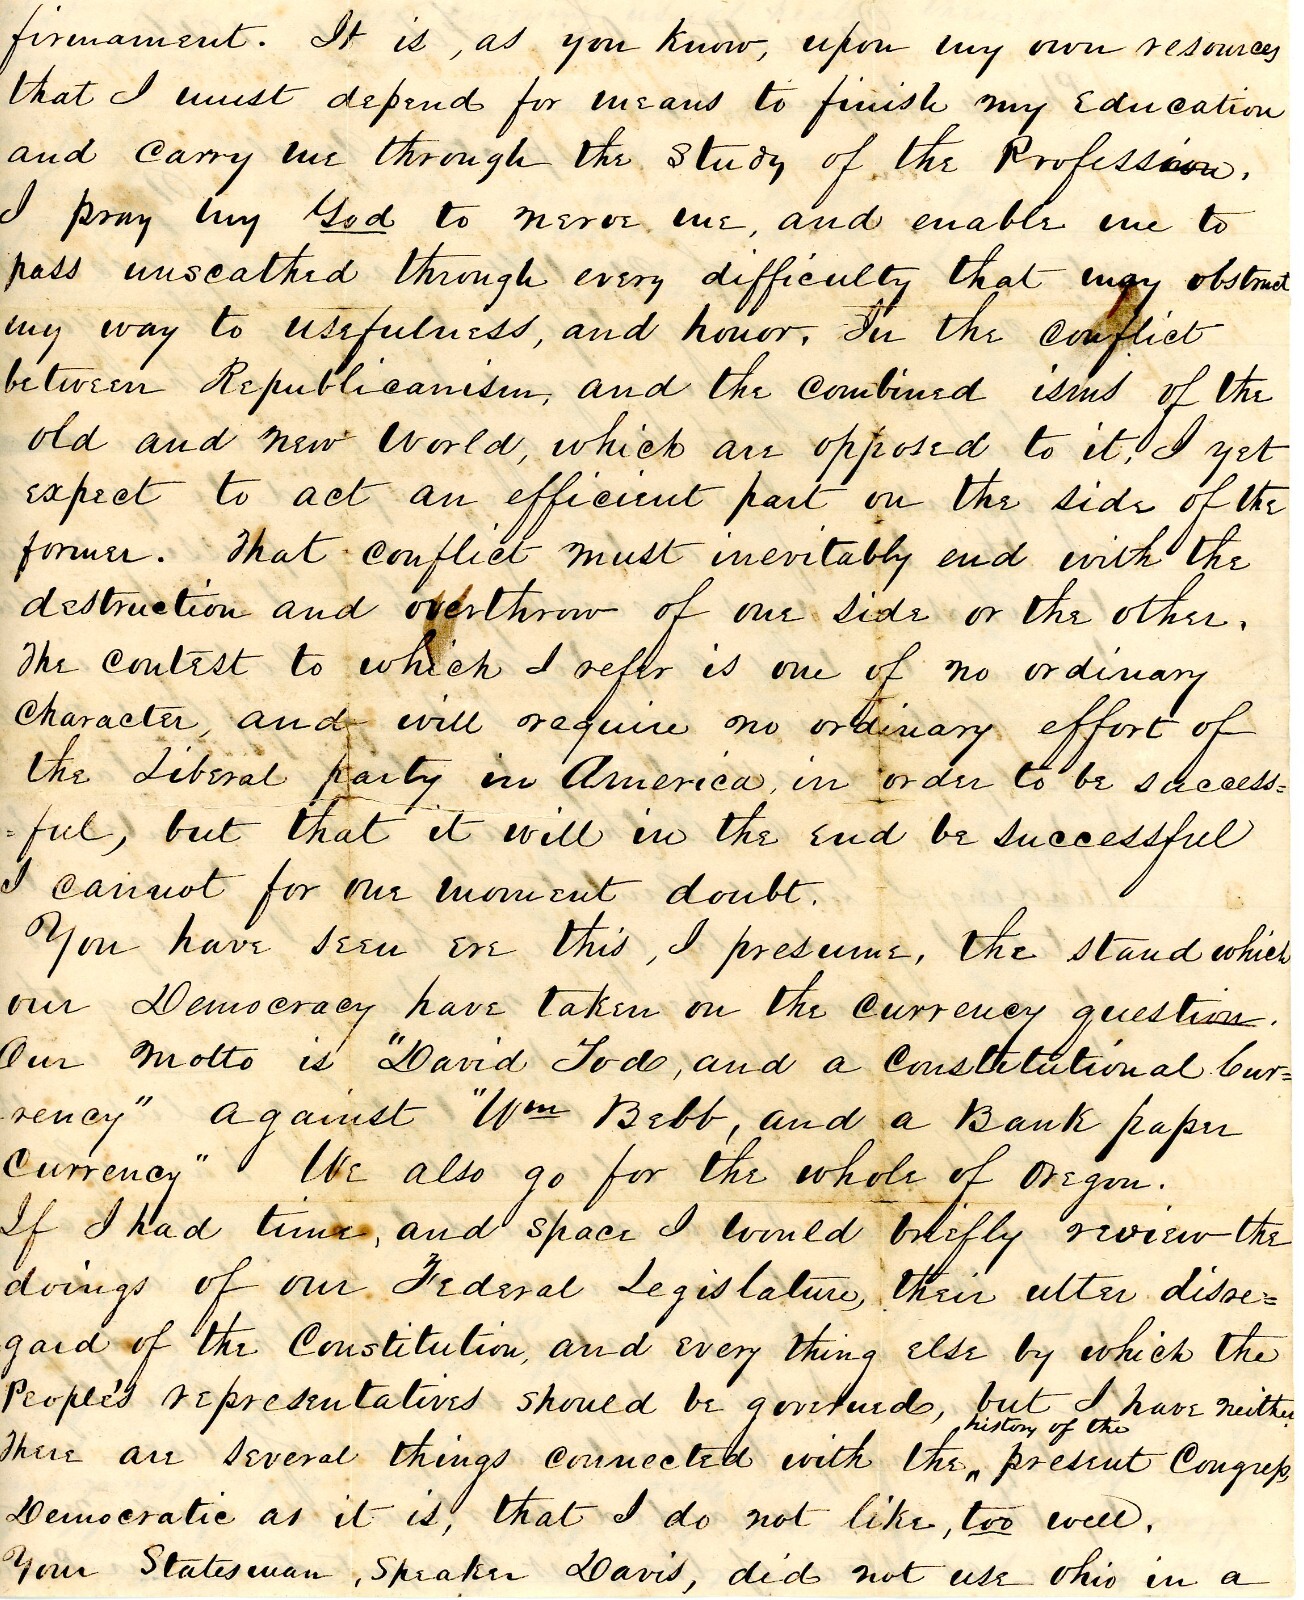 firmament. It is, as you know, upon my own resources
that I must depend for means to finish my Education
and carry me through the study of the Profession.
I pray my God to nerve me, and enable me to
pass unscathed through every difficulty that may obstruct
my way to usefulness, and honor. In the conflict
between Republicanism, and the combined isms of the
old and new World, which are opposed to it, I yet
expect to act an efficient part on the side of the
former. That conflict must inevitably end with the
destruction and overthrow of one side or the other.
The contest to which I refer is one of no ordinary
character, and will require no ordinary effort of
the Liberal party in America, in order to be success=
=ful, but that it will in the end be successful
I cannot for one moment doubt.
You have seen ere this, I presume, the stand which
our Democracy have taken on the currency question.
Our Motto is "David Tod, and a Constitutional Cur=
rency" against "Wm Bebb, and a Bank paper
Currency" We also go for the whole of Oregon.
If I had time, and space I would briefly review the
doings of our Federal Legislature, their utter disre=
gard of the Constitution, and every thing else by which the
People's representatives should be governed, but I have neither.
There are several things connected with the history of the present Congress,
Democratic as it is, that I do not like, too well.
Your Statesman, Speaker Davis, did not use Ohio in a